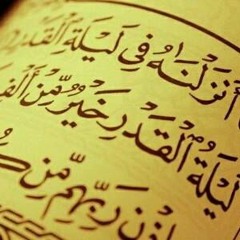 أَنزَلْنَٰهُ فِى لَيْلَةِ ٱلْقَدْرِ
لَيْلَةُ ٱلْقَدْرِ خَيْرٌ مِّنْ أَلْفِ
رَبِّهِم مِّن كُ